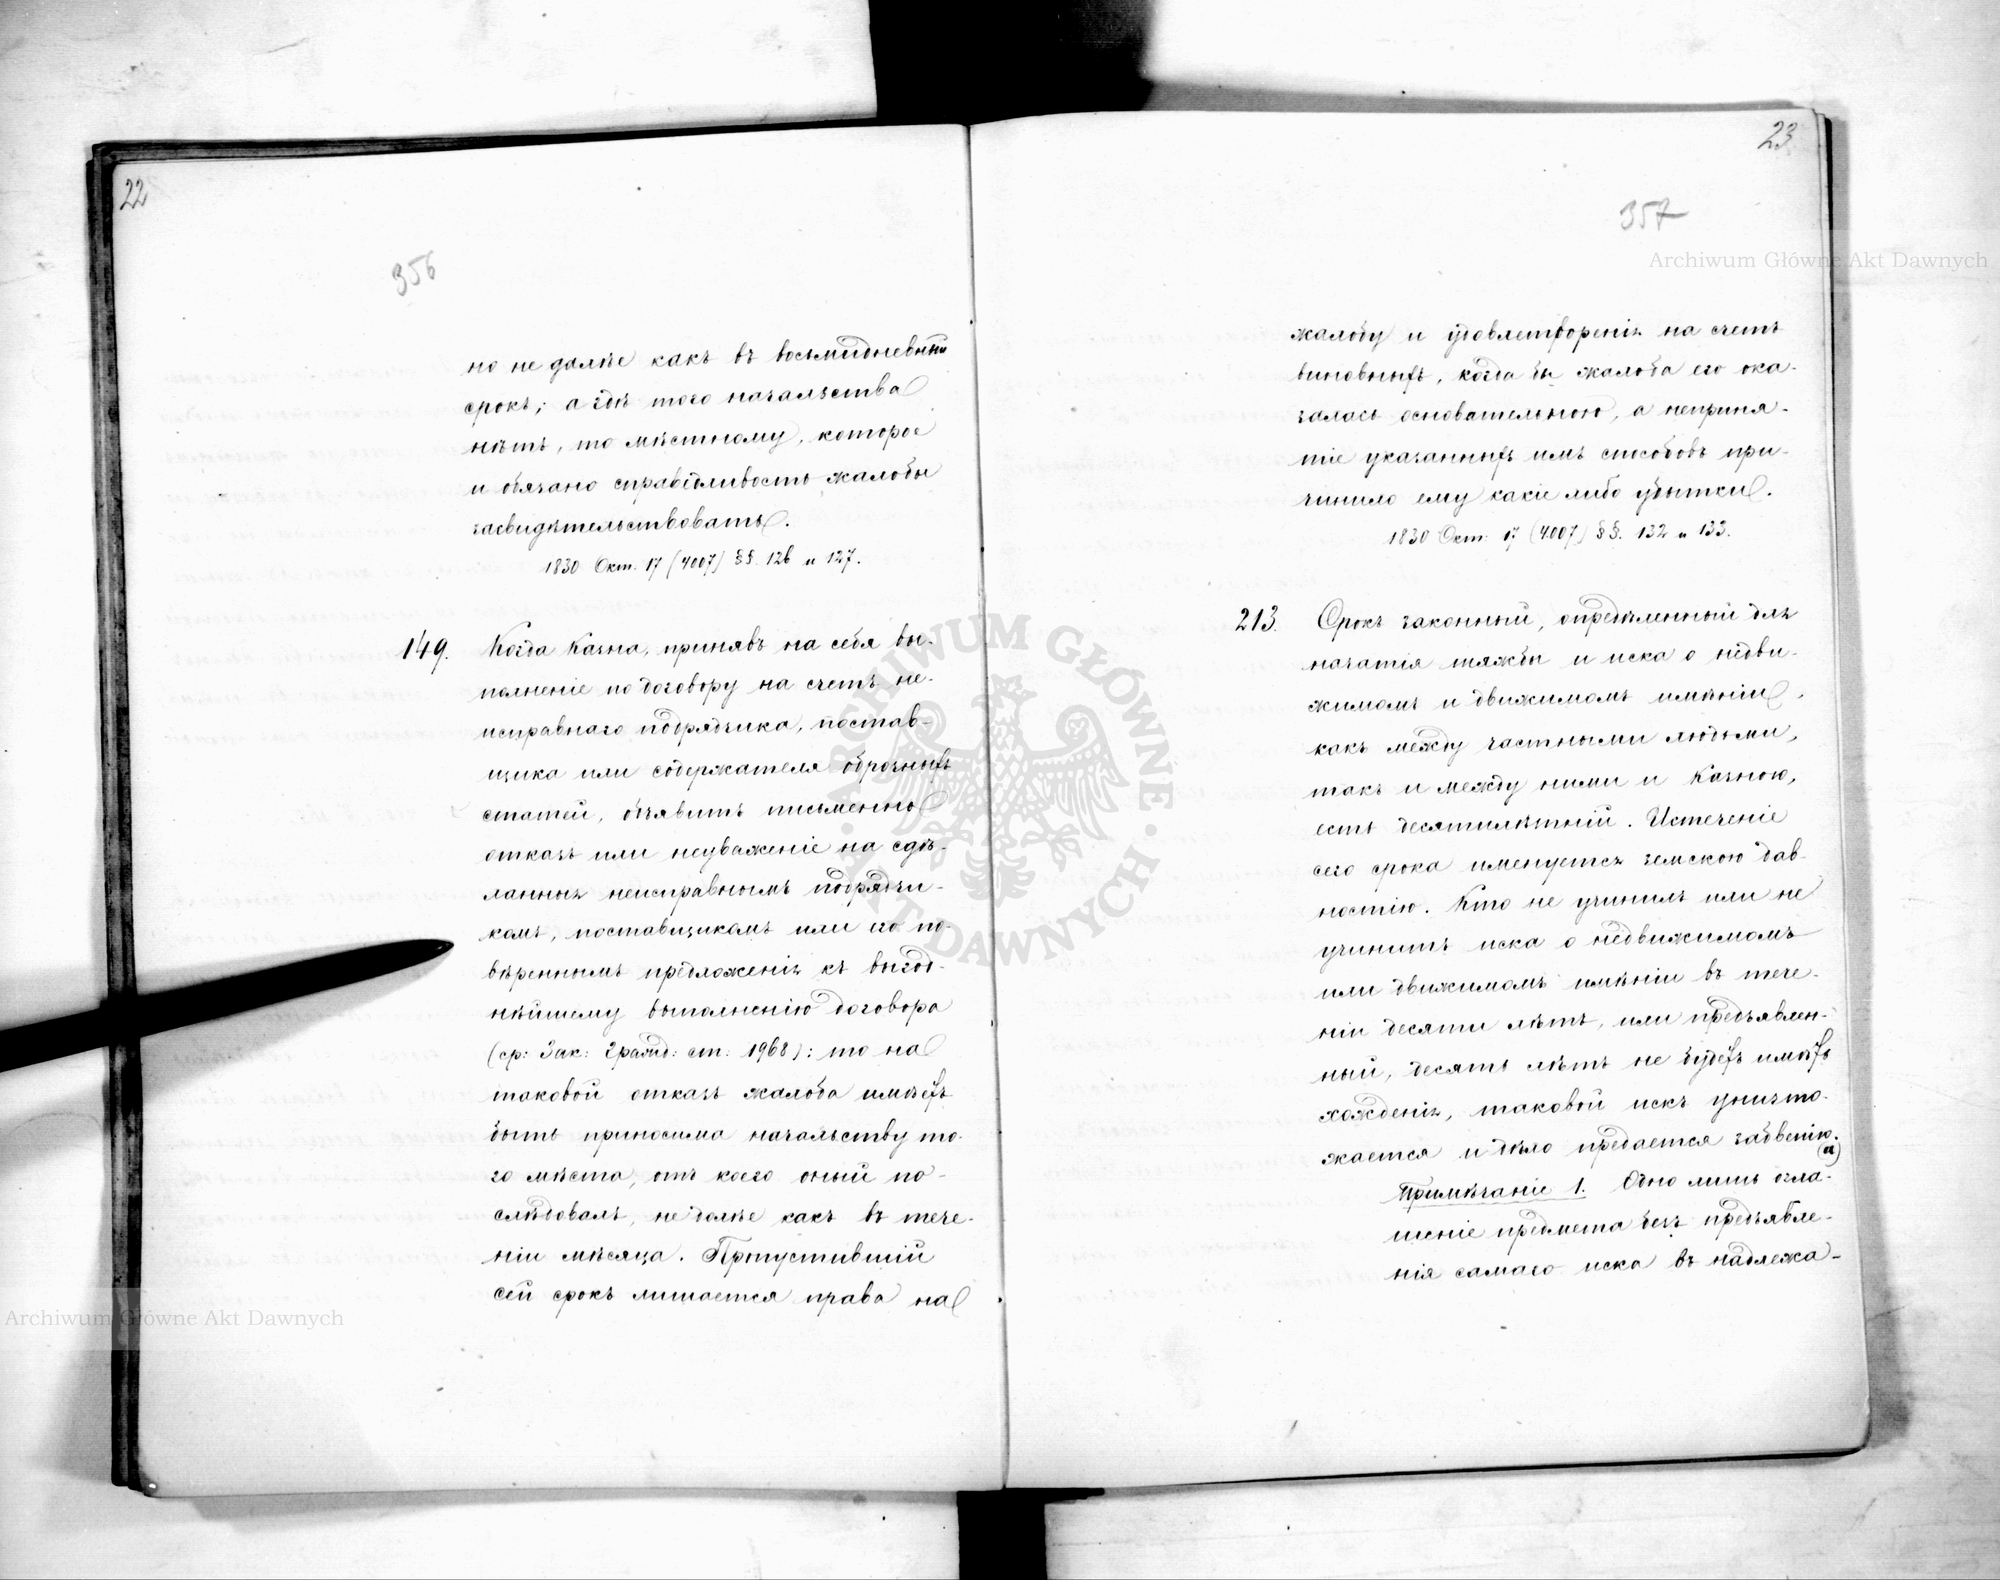 22
356
но не далѣе какъ въ восьмидневный
срокъ; а гдѣ того начальства
нѣтъ, то мѣстному, которое
и обязано справедливость жалобы
засвидѣтельствовать.
1830 Окт. 17 (4007) §§. 126 и 127.
149. Когда Казна, принявъ на себя вы-
полненіе по договору на счетъ не-
исправнаго подрядчика, постав-
щика или содержателя оброчныхъ
статей, объявитъ письменно
отказъ или неуваженіе на сдѣ-
ланныя неисправнымъ подрядчи-
комъ, поставщикомъ или его по-
вѣреннымъ предложенія къ выгод-
нѣйшему выполненію договора
(ср: Зак: Гражд: ст: 1968): то на
таковой отказъ жалоба имѣетъ
быть приносима начальству то-
го мѣста, отъ коего оный по-
слѣдовалъ, не далѣе какъ въ тече-
ніи мѣсяца. Пропустившій
сей срокъ лишается права на
23
357
жалобу и удовлетворенія на счетъ
виновныхъ, когда бы жалоба его ока-
залась основательною, а непринят-
тіе указанныхъ имъ способовъ при-
чинило ему какіе либо убытки.
1830 Окт: 17 (4007) §§. 132 и 133.
213. Срокъ законный, опредѣленный для
начатія тяжбы и иска о недви-
жимомъ и движимомъ имѣніи,
какъ между частными людьми,
такъ и между ними и Казною,
есть десятилѣтній. Истеченіе
сего срока именуется земскою дав-
ностію. Кто не учинилъ или не
учинитъ иска о недвижимомъ
или движимомъ имѣніи въ тече-
ніи десяти лѣтъ, или предъявлен-
ный, десять лѣтъ не будетъ имѣть
хожденія, таковой искъ уничто-
жается и дѣло предается забвенію.
(а)
Примѣчаніе 1. Одно лишь огла-
шеніе предмета безъ предъявле-
нія самаго иска въ надлежа-
Archiwum Główne Akt Dawnych
Archiwum Główne Akt Dawnych
ARCHIWUM GŁÓWNE AKT DAWNYCH